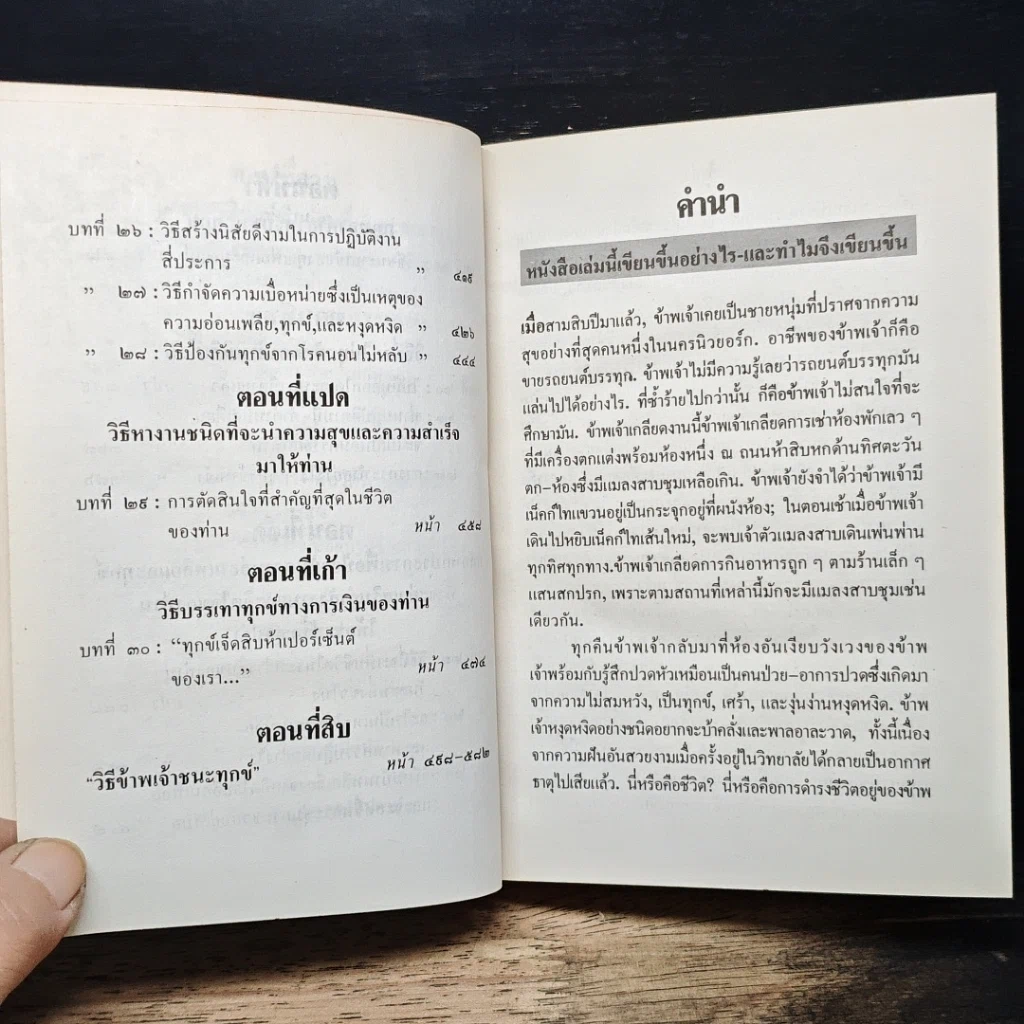 บทที่ ๒๖ : วิธีสร้างนิสัยดีงามในการปฏิบัติงาน
สี่ประการ ” ๔๑๙
” ๒๗ : วิธีกำจัดความเบื่อหน่ายซึ่งเป็นเหตุของ
ความอ่อนเพลีย,ทุกข์,และหงุดหงิด ” ๔๒๖
” ๒๘ : วิธีป้องกันทุกข์จากโรคนอนไม่หลับ ” ๔๔๔
ตอนที่แปด
วิธีหางานชนิดที่จะนำความสุขและความสำเร็จ
มาให้ท่าน
บทที่ ๒๙ : การตัดสินใจที่สำคัญที่สุดในชีวิต
ของท่าน หน้า ๔๕๘
ตอนที่เก้า
วิธีบรรเทาทุกข์ทางการเงินของท่าน
บทที่ ๓๐ : “ทุกข์เจ็ดสิบห้าเปอร์เซ็นต์
ของเรา...” หน้า ๔๗๔
ตอนที่สิบ
“วิธีข้าพเจ้าชนะทุกข์” หน้า ๔๙๘-๕๘๒
คำนำ
หนังสือเล่มนี้เขียนขึ้นอย่างไร-และทำไมจึงเขียนขึ้น
เมื่อสามสิบปีมาแล้ว, ข้าพเจ้าเคยเป็นชายหนุ่มที่ปราศจากความ
สุขอย่างที่สุดคนหนึ่งในนครนิวยอร์ก. อาชีพของข้าพเจ้าก็คือ
ขายรถยนต์บรรทุก. ข้าพเจ้าไม่มีความรู้เลยว่ารถยนต์บรรทุกมัน
แล่นไปได้อย่างไร. ที่ซ้ำร้ายไปกว่านั้น ก็คือข้าพเจ้าไม่สนใจที่จะ
ศึกษามัน. ข้าพเจ้าเกลียดงานนี้ข้าพเจ้าเกลียดการเช่าห้องพักเลว ๆ
ที่มีเครื่องตกแต่งพร้อมห้องหนึ่ง ณ ถนนห้าสิบหกด้านทิศตะวัน
ตก–ห้องซึ่งมีแมลงสาบชุมเหลือเกิน. ข้าพเจ้ายังจำได้ว่าข้าพเจ้ามี
เน็คก์ไทแขวนอยู่เป็นกระจุกอยู่ที่ผนังห้อง; ในตอนเช้าเมื่อข้าพเจ้า
เดินไปหยิบเน็คก์ไทเส้นใหม่, จะพบเจ้าตัวแมลงสาบเดินเพ่นพ่าน
ทุกทิศทุกทาง.ข้าพเจ้าเกลียดการกินอาหารถูก ๆ ตามร้านเล็ก ๆ
แสนสกปรก, เพราะตามสถานที่เหล่านี้มักจะมีแมลงสาบชุมเช่น
เดียวกัน.
ทุกคืนข้าพเจ้ากลับมาที่ห้องอันเงียบวังเวงของข้าพ
เจ้าพร้อมกับรู้สึกปวดหัวเหมือนเป็นคนป่วย–อาการปวดซึ่งเกิดมา
จากความไม่สมหวัง, เป็นทุกข์, เศร้า, และงุ่นง่านหงุดหงิด. ข้าพ
เจ้าหงุดหงิดอย่างชนิดอยากจะบ้าคลั่งและพาลอาละวาด, ทั้งนี้เนื่อง
จากความฝันอันสวยงามเมื่อครั้งอยู่ในวิทยาลัยได้กลายเป็นอากาศ
ธาตุไปเสียแล้ว. นี่หรือคือชีวิต? นี่หรือคือการดำรงชีวิตอยู่ของข้าพ